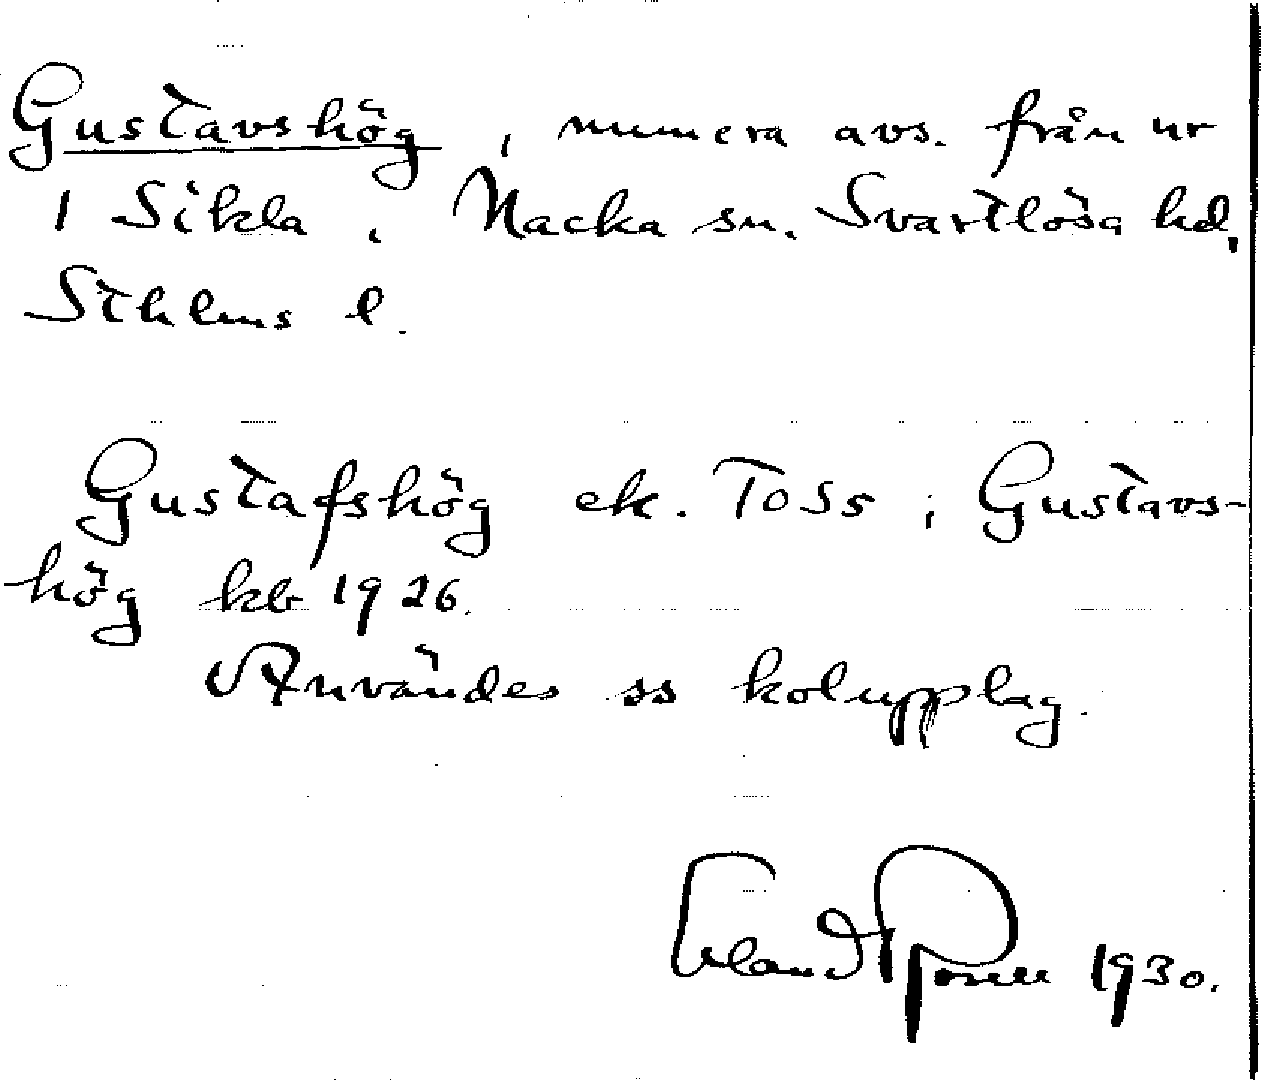 Gustavshög, numera avs. från nr
1 Sikla, Nacka sn. Svartlösa hd,
Sthlms l.
Gustafshög ek. T 055; Gustavs-
hög kb 1926.
Användes ss kolupplag.
Erland Rosell 1930.